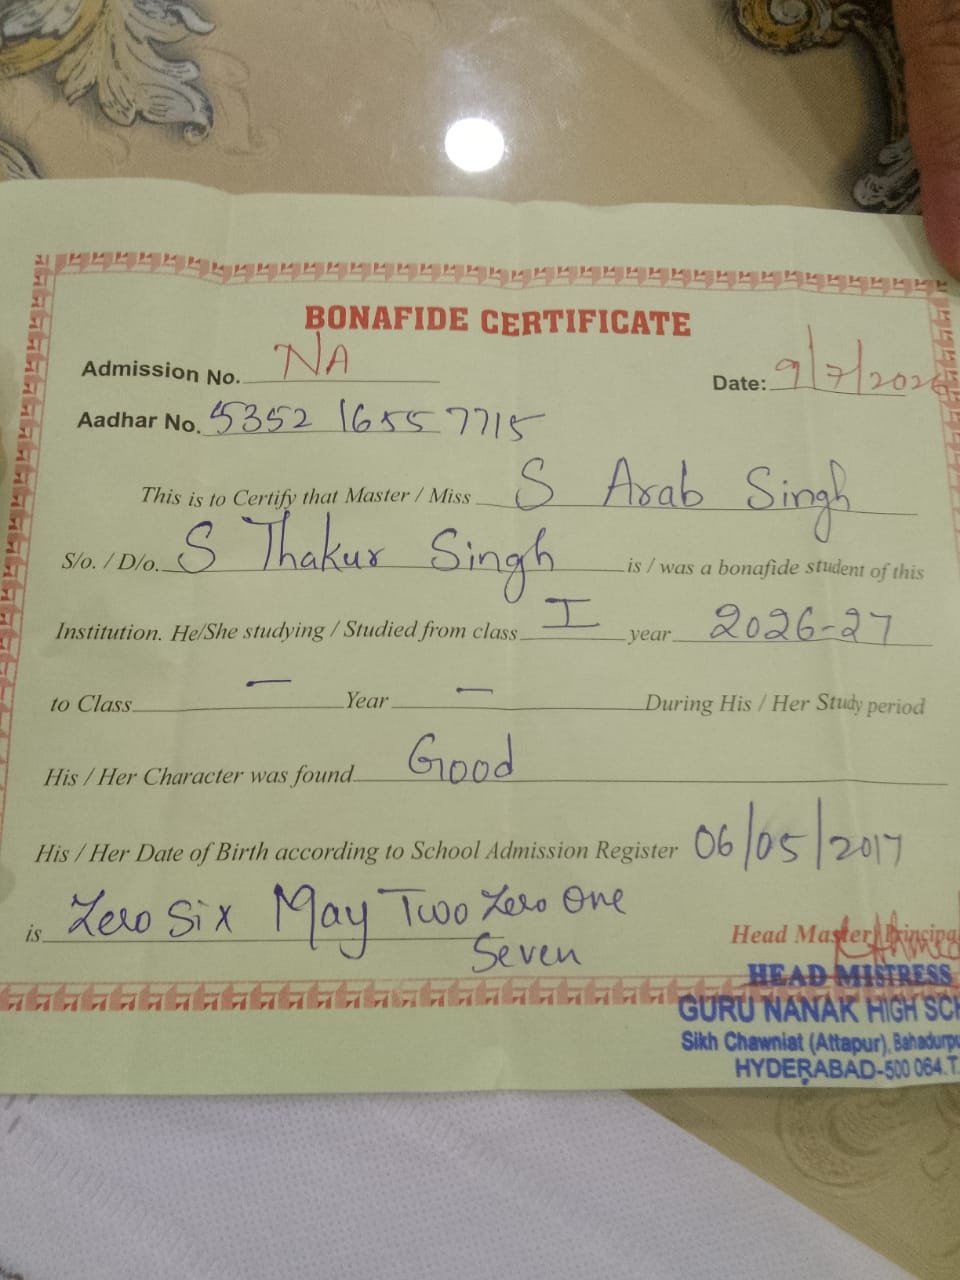 BONAFIDE CERTIFICATE
Admission No. NA
Date: 9/7/2026
Aadhar No. 5352 1655 7715
This is to Certify that Master / Miss S Arab Singh
S/o. / D/o. S Thakur Singh is / was a bonafide student of this
Institution. He/She studying / Studied from class I year 2026-27
to Class — Year — During His / Her Study period
His / Her Character was found Good
His / Her Date of Birth according to School Admission Register 06/05/2017
is Zero Six May Two Zero One
Seven
Head Master / Principa
HEAD MISTRESS
GURU NANAK HIGH SCH
Sikh Chawniat (Attapur), Bahadurpu
HYDERABAD-500 064. T